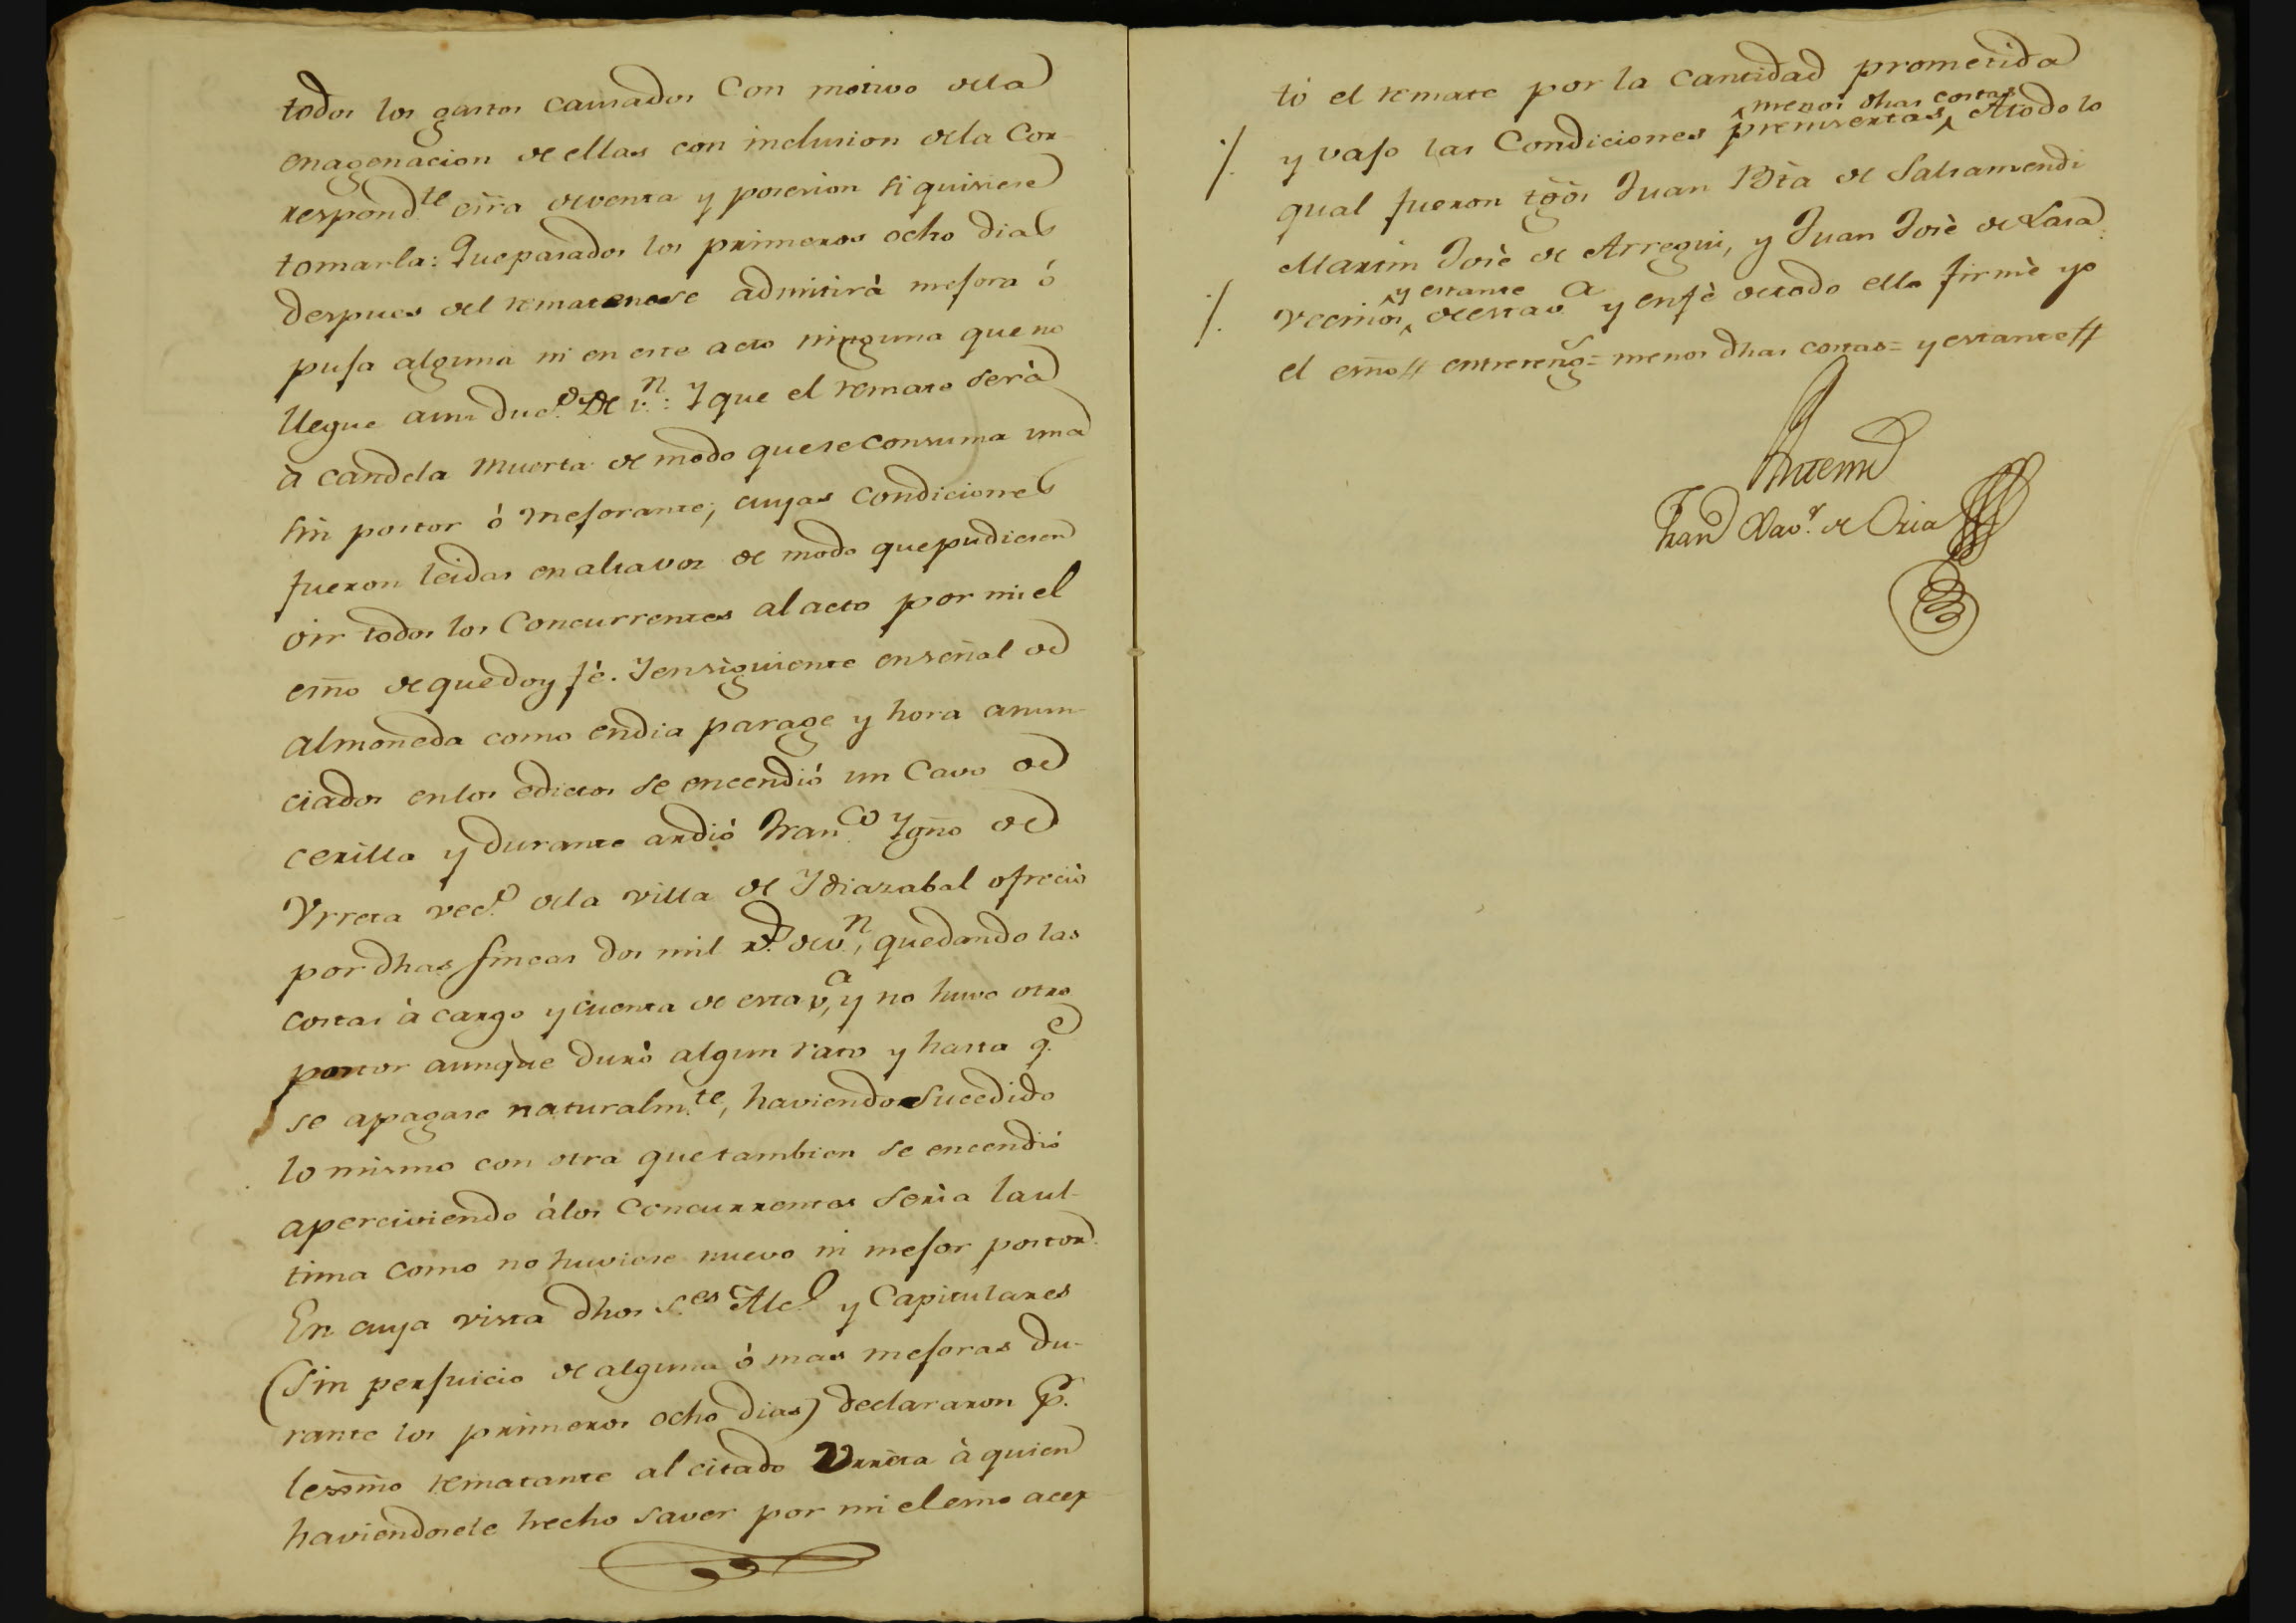 todos los gastos causados Con motivo dela
enagenacion de ellas con inclusion dela Cor-
respond.te esr̃a deventa y posesion si quisiese
tomarla: Que pasados los primeros ocho dias
despues del remate no se admitirà mejora ó
puja alguna ni en este acto ninguna que no
llegue aun duc.do de v.n: Y que el remate serà
à candela muerta de modo que se consuma una
sin postor ó mejorante; cuyas condiciones
fueron leidas en alta voz de modo que pudiesen
oir todos los Concurrentes al acto por mi el
esño de que doy fé. Y ensiguiente enseñal de
almoneda como endia parage y hora anun-
ciados en los edictos se encendió un Cavo de
cerilla y durante ardió Fran.co Ygño de
Yrreta vec.o dela villa de Ydiazabal ofreciò
por dhas fincas dos mil r.s dev.n, quedando las
costas à cargo y cuenta de esta v.a, y no huvo otro
postor aunque durò algun rato y hasta q.e
se apagase naturalm.te, haviendo sucedido
lo mismo con otra que tambien se encendió
aperciviendo álos Concurrentes seria la ul-
tima como no huviese nuevo ni mejor postor.
En cuya vista dhos S.es Alc.e y Capitulares
(sin perjuicio de alguna ò mas mejoras du-
rante los primeros ocho dias) declararon p.r
lexmo rematante al citado Urreta à quien
haviendosele hecho saver por mi el esño acep-
tó el remate por la Cantidad prometida
menos dhas costas
/. y vajo las Condiciones preinsertas, A todo lo
qual fueron tg̃os Juan Bta de Salsamendi
Martin José de Arregui, y Juan José de Lasa
y estante
/. vecinos, de esta v.a y enfè detodo ello firmè yo
el esño // entrereng.s = menos dhas costas = y estante //
Antemi
Fran.co Xav.r de Oria